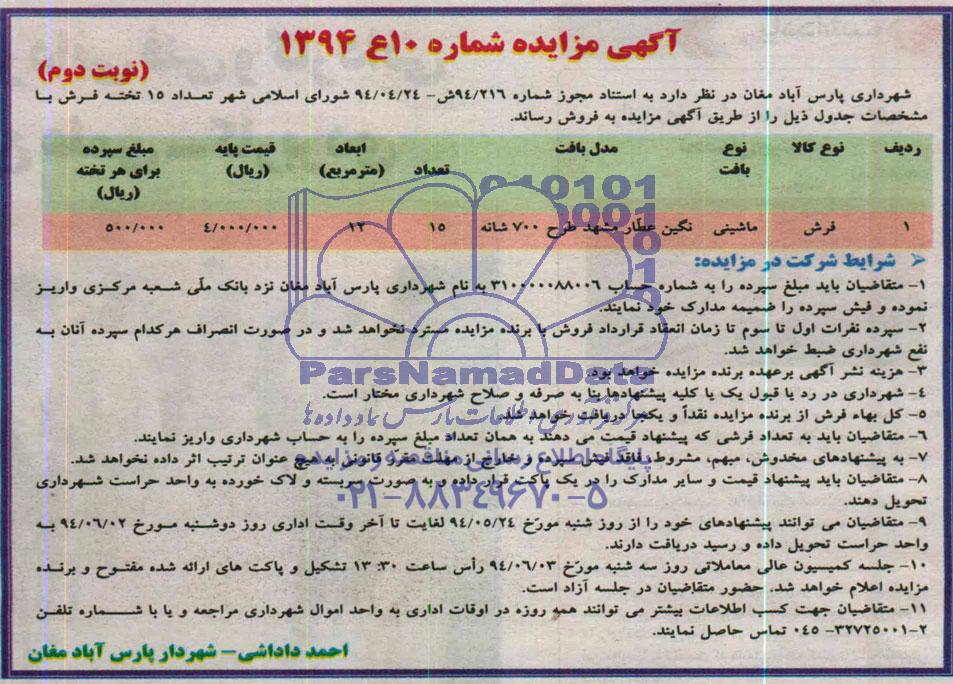 آگهی مزایده شماره ۱۰ع ۱۳۹۴
(نوبت دوم)
شهرداری پارس آباد مغان در نظر دارد به استناد مجوز شماره ۹۴/۲۱۶ش- ۹۴/۰۴/۲۴ شورای اسلامی شهر تعداد ۱۵ تخته فرش با
مشخصات جدول ذیل را از طریق آگهی مزایده به فروش رساند.
ردیف نوع کالا نوع بافت مدل بافت تعداد ابعاد (مترمربع) قیمت پایه (ریال) مبلغ سپرده برای هر تخته (ریال)
۱ فرش ماشینی نگین عطّار مشهد طرح ۷۰۰ شانه ۱۵ ۱۲ ۴/۰۰۰/۰۰۰ ۵۰۰/۰۰۰
شرایط شرکت در مزایده:
۱- متقاضیان باید مبلغ سپرده را به شماره حساب ۳۱۰۰۰۰۰۸۸۰۰۶ به نام شهرداری پارس آباد مغان نزد بانک ملّی شعبه مرکزی واریز
نموده و فیش سپرده را ضمیمه مدارک خود نمایند.
۲- سپرده نفرات اول تا سوم تا زمان انعقاد قرارداد فروش با برنده مزایده مسترد نخواهد شد و در صورت انصراف هرکدام سپرده آنان به
نفع شهرداری ضبط خواهد شد.
۳- هزینه نشر آگهی برعهده برنده مزایده خواهد بود.
۴- شهرداری در رد یا قبول یک یا کلیه پیشنهادها بنا به صرفه و صلاح شهرداری مختار است.
۵- کل بهاء فرش از برنده مزایده نقداً و یکجا دریافت خواهد شد.
۶- متقاضیان باید به تعداد فرشی که پیشنهاد قیمت می دهند به همان تعداد مبلغ سپرده را به حساب شهرداری واریز نمایند.
۷- به پیشنهادهای مخدوش، مبهم، مشروط، فاقد فیش سپرده و خارج از مهلت مقرر قانونی به هیچ عنوان ترتیب اثر داده نخواهد شد.
۸- متقاضیان باید پیشنهاد قیمت و سایر مدارک را در یک پاکت قرار داده و به صورت سربسته و لاک خورده به واحد حراست شهرداری
تحویل دهند.
۹- متقاضیان می توانند پیشنهادهای خود را از روز شنبه مورّخ ۹۴/۰۵/۲۴ لغایت تا آخر وقت اداری روز دوشنبه مورخ ۹۴/۰۶/۰۲ به
واحد حراست تحویل داده و رسید دریافت دارند.
۱۰- جلسه کمیسیون عالی معاملاتی روز سه شنبه مورّخ ۹۴/۰۶/۰۳ رأس ساعت ۱۳:۳۰ تشکیل و پاکت های ارائه شده مفتوح و برنده
مزایده اعلام خواهد شد. حضور متقاضیان در جلسه آزاد است.
۱۱- متقاضیان جهت کسب اطلاعات بیشتر می توانند همه روزه در اوقات اداری به واحد اموال شهرداری مراجعه و یا با شماره تلفن
۲-۳۲۷۲۵۰۰۱- ۰۴۵ تماس حاصل نمایند.
احمد داداشی- شهردار پارس آباد مغان
ParsNamadData
مرکز فرآوری اطلاعات پارس نماد داده ها
پایگاه اطلاع رسانی مناقصه و مزایده
۰۲۱-۸۸۳۴۹۶۷۰-۵